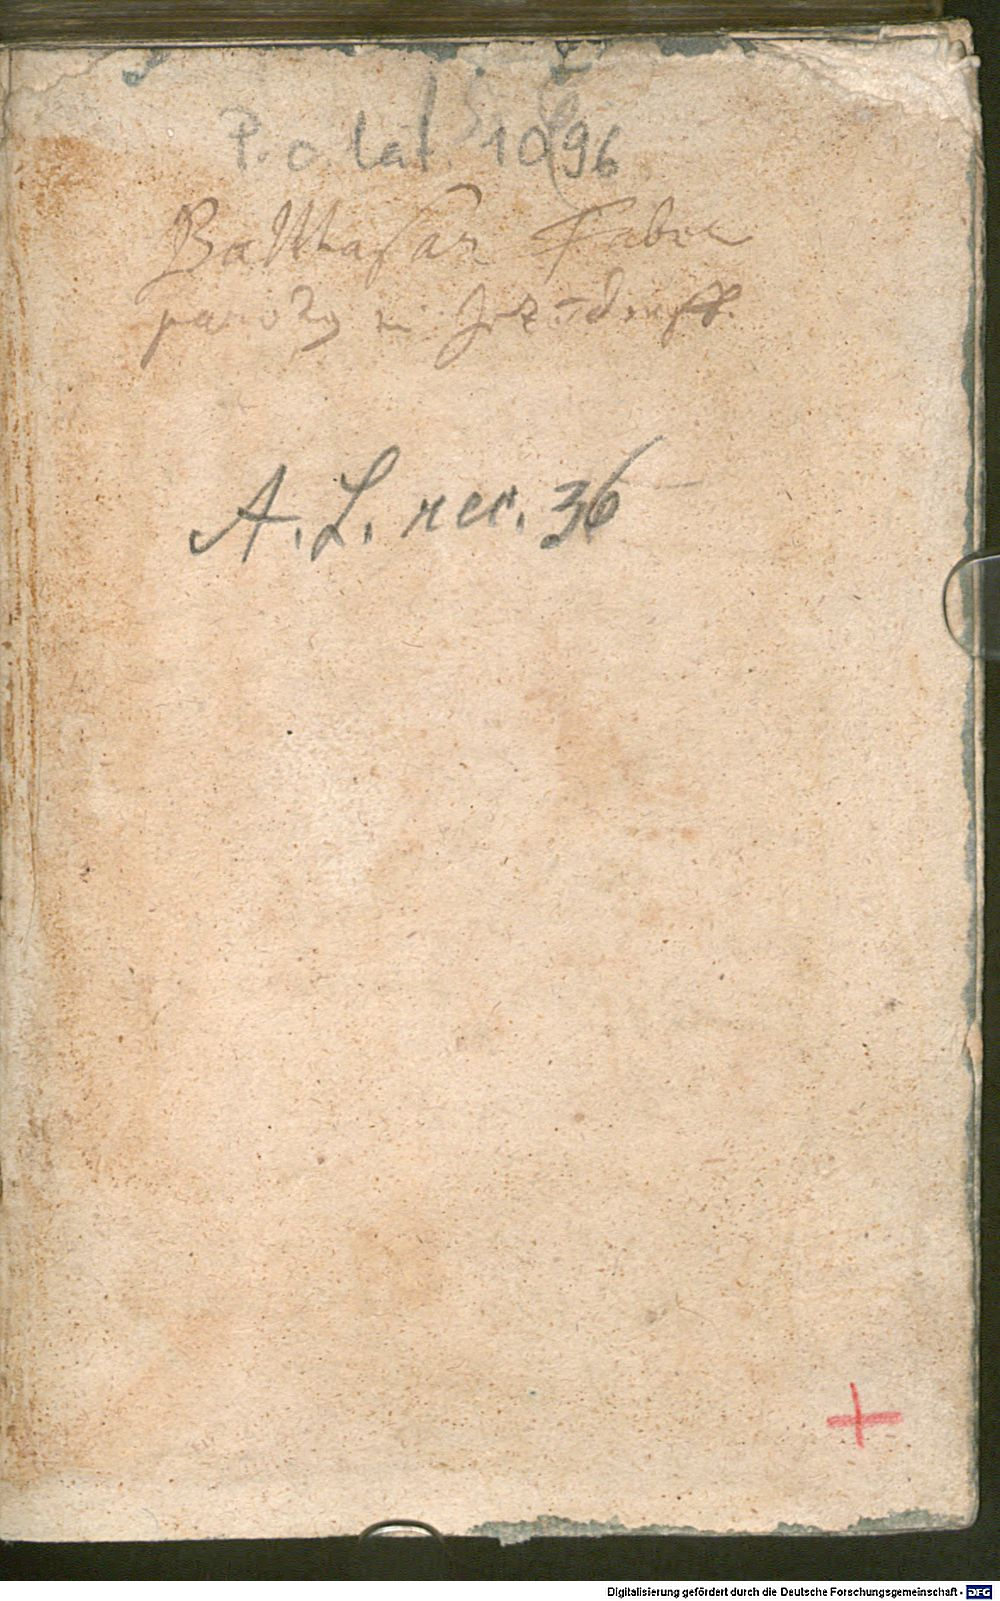 P. o. lat. 1096
Balthasar Faber
A. L. rec. 36
Digitalisierung gefördert durch die Deutsche Forschungsgemeinschaft - DFG